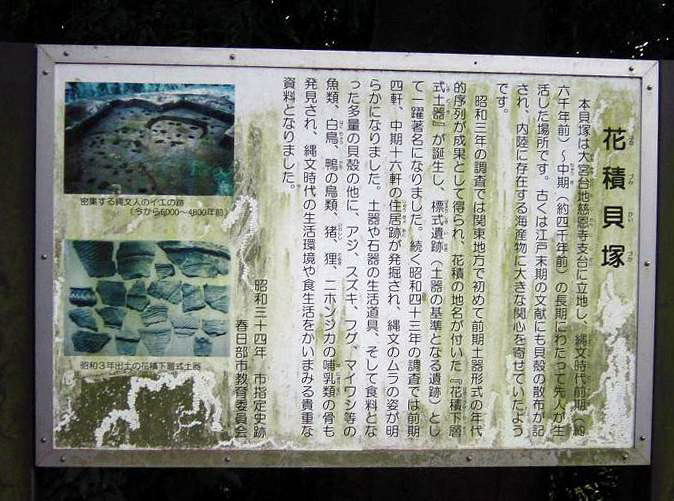 花積貝塚
はな づみ かい づか
本貝塚は大宮台地慈恩寺支台に立地し、縄文時代前期（約
六千年前）～中期（約四千年前）の長期にわたって先人が生
活した場所です。古くは江戸末期の文献にも貝殻の散布が記
され、内陸に存在する海産物に大きな関心を寄せていたよう
です。
昭和三年の調査では関東地方で初めて前期土器形式の年代
的序列が成果として得られ、花積の地名が付いた『花積下層
式土器』が誕生し、標式遺跡（土器の基準となる遺跡）とし
て一躍著名になりました。続く昭和四十三年の調査では前期
四軒、中期十六軒の住居跡が発掘され、縄文のムラの姿が明
らかになりました。土器や石器の生活道具、そして食料とな
った多量の貝殻の他に、アジ、スズキ、フグ、マイワシ等の
魚類、白鳥、鴨の鳥類、猪、狸、ニホンジカの哺乳類の骨も
発見され、縄文時代の生活環境や食生活をかいまみる貴重な
資料となりました。
昭和三十四年　市指定史跡
春日部市教育委員会
密集する縄文人のイエの跡
（今から6000～4800年前）
昭和3年出土の花積下層式土器